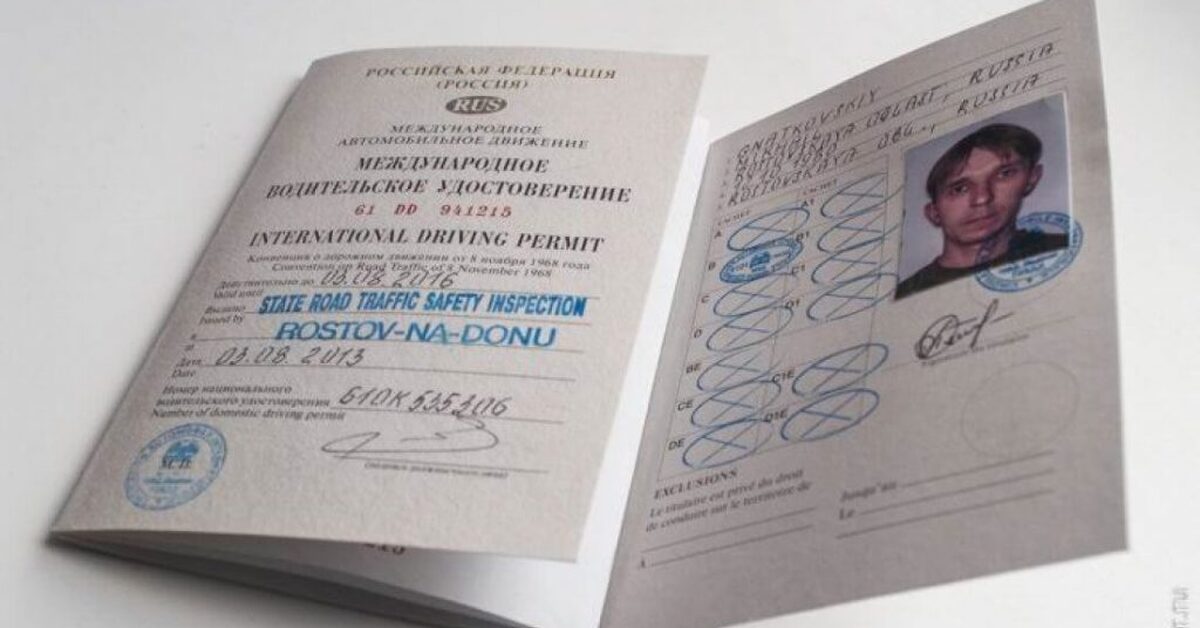 РОССИЙСКАЯ ФЕДЕРАЦИЯ
(РОССИЯ)
RUS
МЕЖДУНАРОДНОЕ
АВТОМОБИЛЬНОЕ ДВИЖЕНИЕ
МЕЖДУНАРОДНОЕ
ВОДИТЕЛЬСКОЕ УДОСТОВЕРЕНИЕ
61 DD 941215
INTERNATIONAL DRIVING PERMIT
Конвенция о дорожном движении от 8 ноября 1968 года
Convention on Road Traffic of 8 November 1968
Действительно до 03.08.2016
Valid until
Выдано STATE ROAD TRAFFIC SAFETY INSPECTION
Issued by
ROSTOV-NA-DONU
Дата 03.08.2013
Date
Номер национального
водительского удостоверения 61OK535306
Number of domestic driving permit
GNATKOVSKIY
RUSSIA
ROSTOVSKAYA OBL., RUSSIA
A A1
B B1
C C1
D D1
BE C1E
CE D1E
DE
EXCLUSIONS
Le titulaire est privé du droit
de conduire sur le territoire de
Jusqu'au
Le